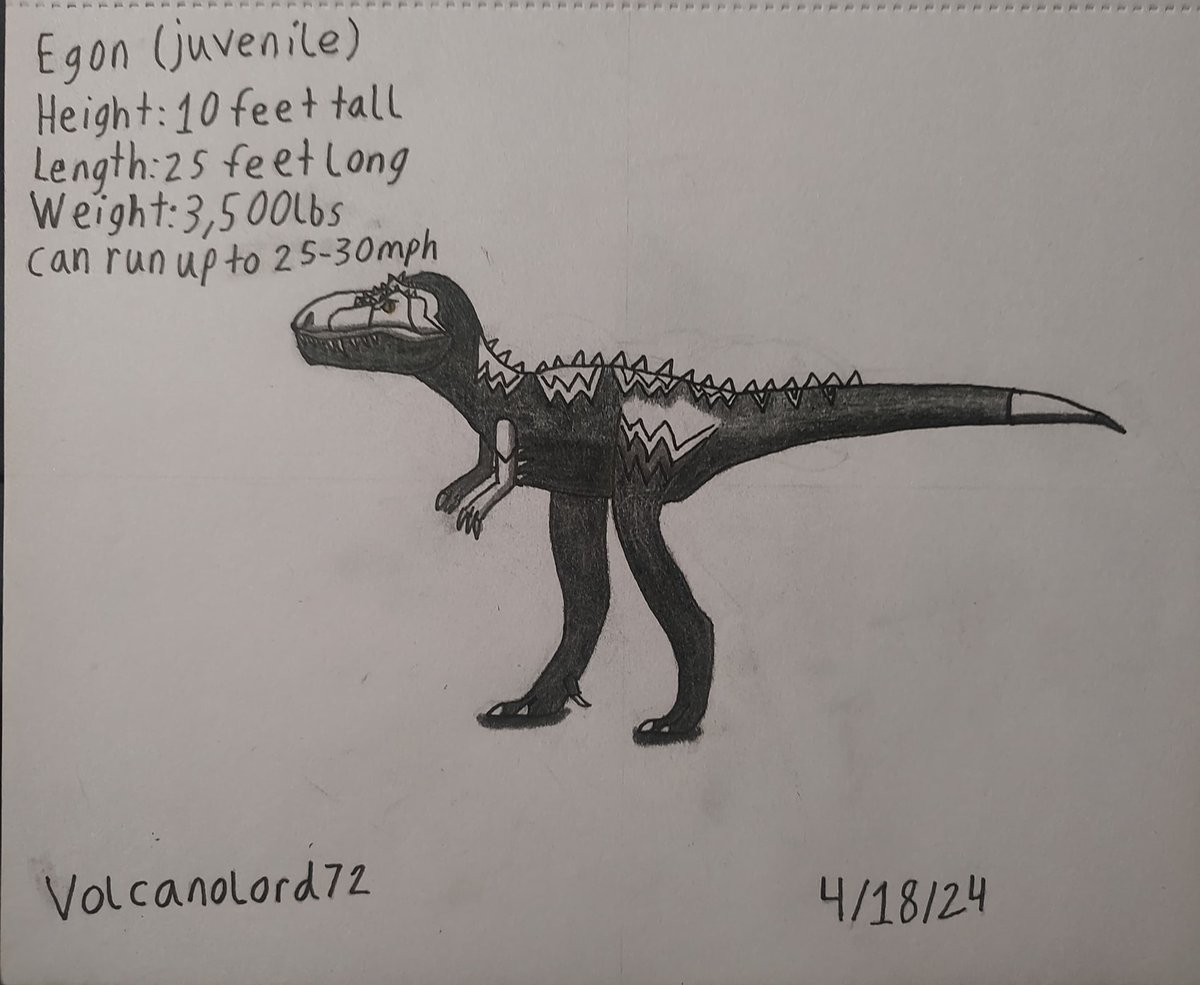 Egon (juvenile)
Height: 10 feet tall
Length: 25 feet Long
Weight: 3,500lbs
can run up to 25-30mph
Volcanolord72
4/18/24